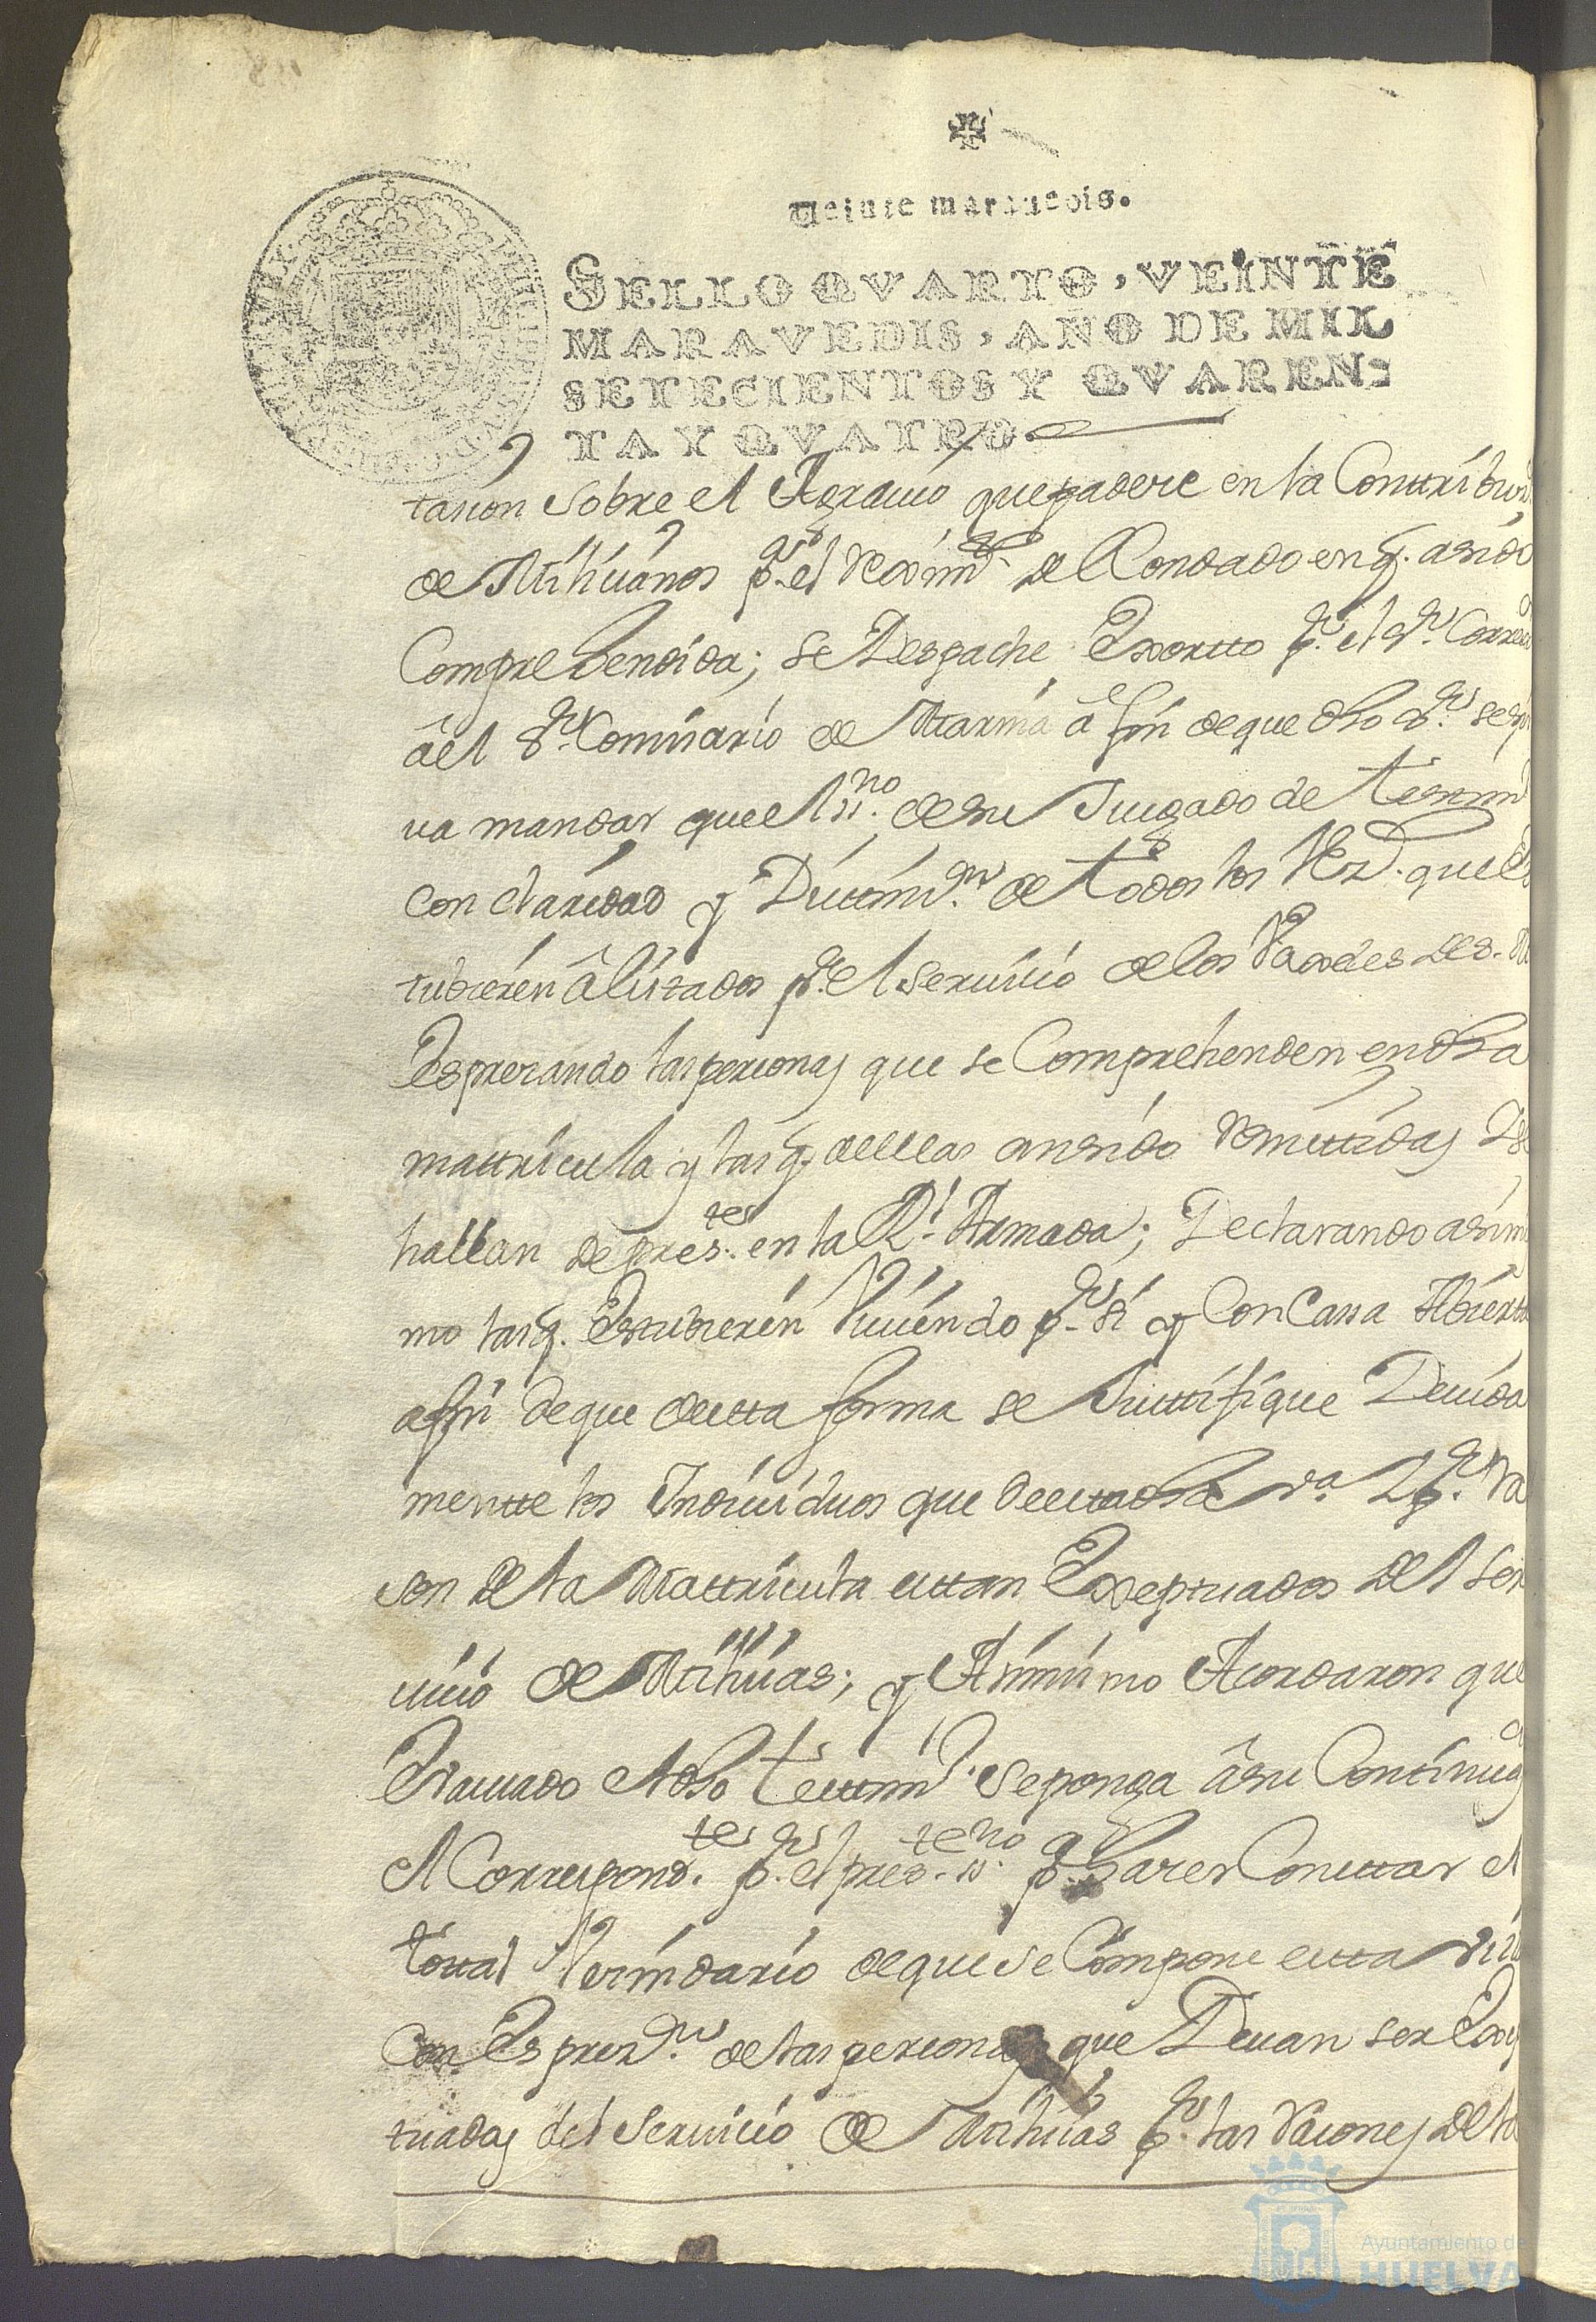 Veinte maravedis.
SELLO QVARTO, VEINTE
MARAVEDIS, AÑO DE MIL
SETECIENTOS Y QVAREN=
TA Y QVATRO.
tasion sobre el Agravio que padece en la Conttribuz
de Milicianos pr. el Reximto de Condado en q. a sido
Comprehendida; se Despache Exortto pr. el Sr. Corre
â el Sr. Comisario de Marina â fin de que dho Sr. se sir
va mandar que el ssno. de su Juzgado de Testim
con claridad y Distinsn. de todos los Vezs. que es
tubieren âlistados pa. el servicio de los Vaxeles de S. M
Espresando las personas que se Comprehenden en dha
mattricula y las q. de ellas an sido Remittidas y se
hallan de presstes. en la Rl. Armada; Declarando asimis
mo las q. Estubieren Viviendo pr. si y Con Cassa Abierta
a fin de que de esta forma se Justtifique Devida
mentte los Individuos que de esta dha va. y pr. Ra
son de la Mattricula esttan Exseptuados del Ser
vicio de Milicias; y Asimismo Acordaron que
Evacuado el dho testtimo. se ponga â su Continuaz
el Correspondte. pr. el prestte. ssno. pa. hacer Consttar el
tottal Vecindario de que se Compone estta villa
Con Espresn. de las personas que Devan ser Exsep
tuadas del Servicio de Milicias pr. las Rasones de la
Ayuntamiento de
HUELVA